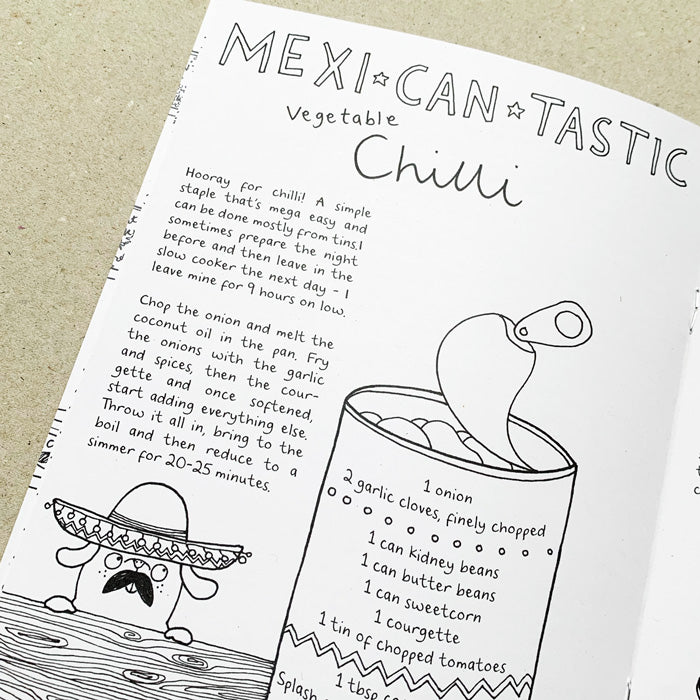 MEXI☆CAN☆TASTIC
Vegetable
Chilli
Hooray for chilli! A simple
staple that's mega easy and
can be done mostly from tins.I
sometimes prepare the night
before and then leave in the
slow cooker the next day - I
leave mine for 9 hours on low.
Chop the onion and melt the
coconut oil in the pan. Fry
the onions with the garlic
and spices, then the cour-
gette and once softened,
start adding everything else.
Throw it all in, bring to the
boil and then reduce to a
simmer for 20-25 minutes.
1 onion
2 garlic cloves, finely chopped
1 can kidney beans
1 can butter beans
1 can sweetcorn
1 courgette
1 tin of chopped tomatoes
1 tbsp
Splash